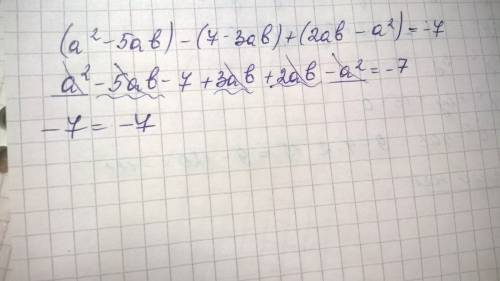 (a² - 5ab) - (7 - 3ab) + (2ab - a²) = -7
a² - 5ab - 7 + 3ab + 2ab - a² = -7
-7 = -7